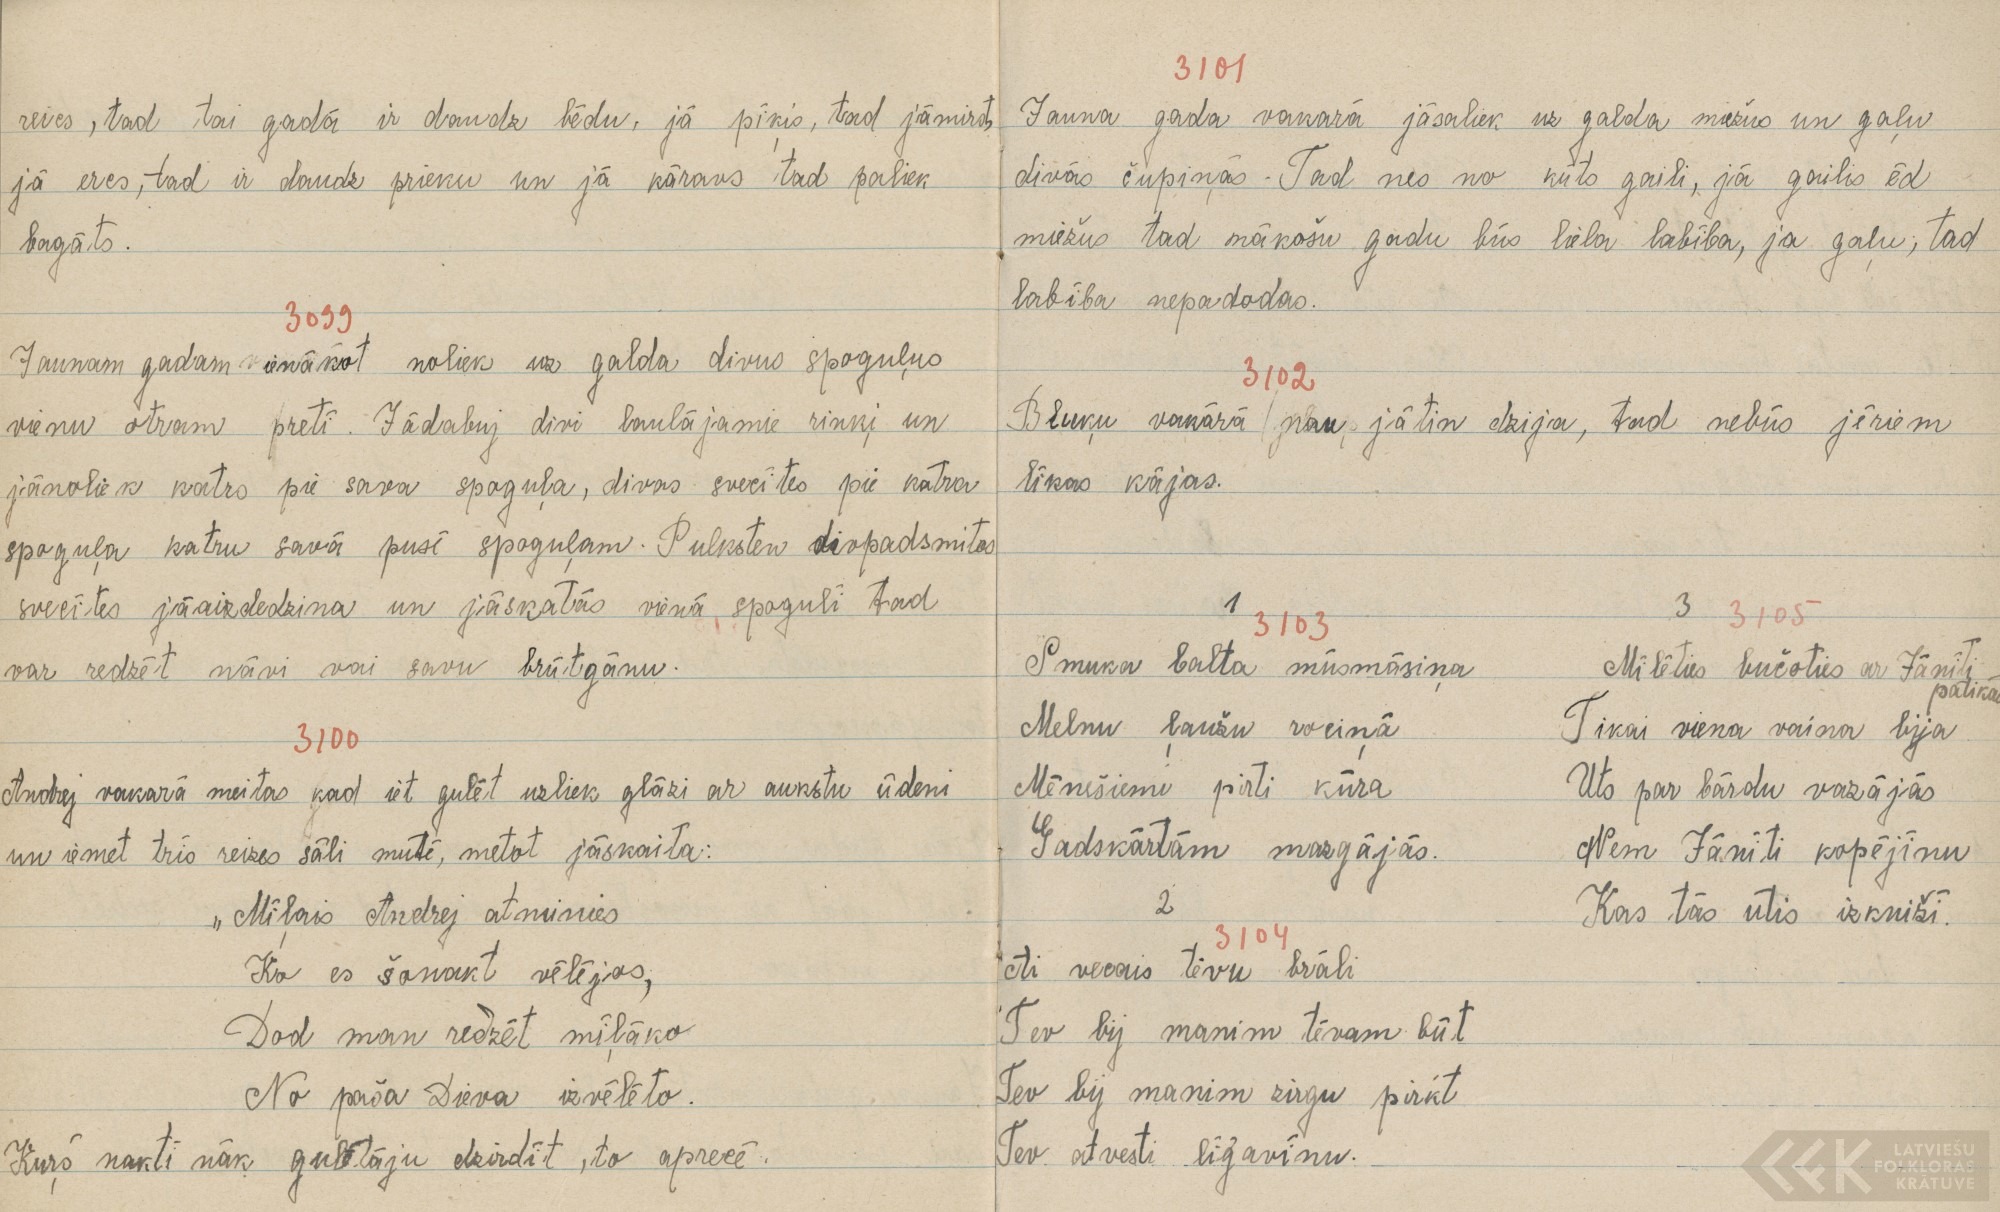 reies, tad tai gadā ir daudz bēdu, jā pīķis, tad jāmirst,
jā eres, tad ir daudz prieku un jā kāravs tad paliek
bagāts.
3099
Jaunam gadam ienākot noliek uz galda divus spoguļus
vienu otram pretī. Jādabuj divi laulājamie rinķi un
jānoliek katrs pie sava spoguļa, divas svecītes pie katra
spoguļa katru savā pusē spoguļam. Pulksten divpadsmitos
svecītes jāaizdedzina un jāskatās vienā spogulī tad
var redzēt nāvi vai savu brūtgānu.
3100
Andrej vakarā meitas kad iet gulēt uzliek glāzi ar aukstu ūdeni
un iemet trīs reizes sāli mutē, metot jāskaita:
„Mīļais Andrej atminies
Ko es šonakt vēlējos,
Dod man redzēt mīļāko
No paša Dieva izvēlēto.
Kuŗš naktī nāk gulētāju dzirdīt, to aprecē.
3101
Jauna gada vakarā jāsaliek uz galda miežus un gaļu
divās čupiņās. Tad nes no kūts gaili, jā gailis ēd
miežus tad nākošu gadu būs liela labība, ja gaļu, tad
labība nepadodas.
3102
Bluķu vakārā jātin dzija, tad nebūs jēriem
līkas kājas.
1
3103
Smuka balta mūsmāsiņa
Melnu ļaužu rociņā
Mēnešiemi pirti kūra
Gadskārtām mazgājās.
2
3104
Ai vecais tēvu brāli
Tev bij manim tēvam būt
Tev bij manim zirgu pirkt
Tev atvesti līgavīnu.
3
3105
Mīlēties bučoties ar Jānīti
patikās
Tikai viena vaina bija
Uts par bārdu vazājās
Ņem Jānīti kopējīnu
Kas tās utis izknižī.
LATVIEŠU
FOLKLORAS
KRĀTUVE